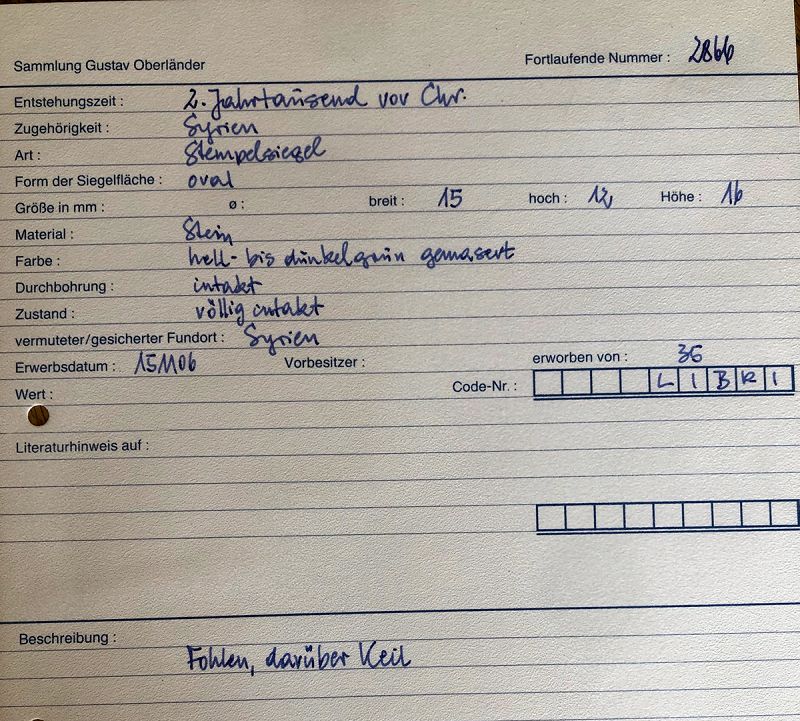 Sammlung Gustav Oberländer Fortlaufende Nummer : 2866
Entstehungszeit : 2. Jahrtausend vor Chr.
Zugehörigkeit : Syrien
Art : Stempelsiegel
Form der Siegelfläche : oval
Größe in mm : ø : breit : 15 hoch : 12 Höhe : 16
Material : Stein
Farbe : hell- bis dunkelgrün gemasert
Durchbohrung : intakt
Zustand : völlig intakt
vermuteter/gesicherter Fundort : Syrien
Erwerbsdatum : 151106 Vorbesitzer : erworben von : 36
Code-Nr. : LIBRI
Wert :
Literaturhinweis auf :
Beschreibung :
Fohlen, darüber Keil